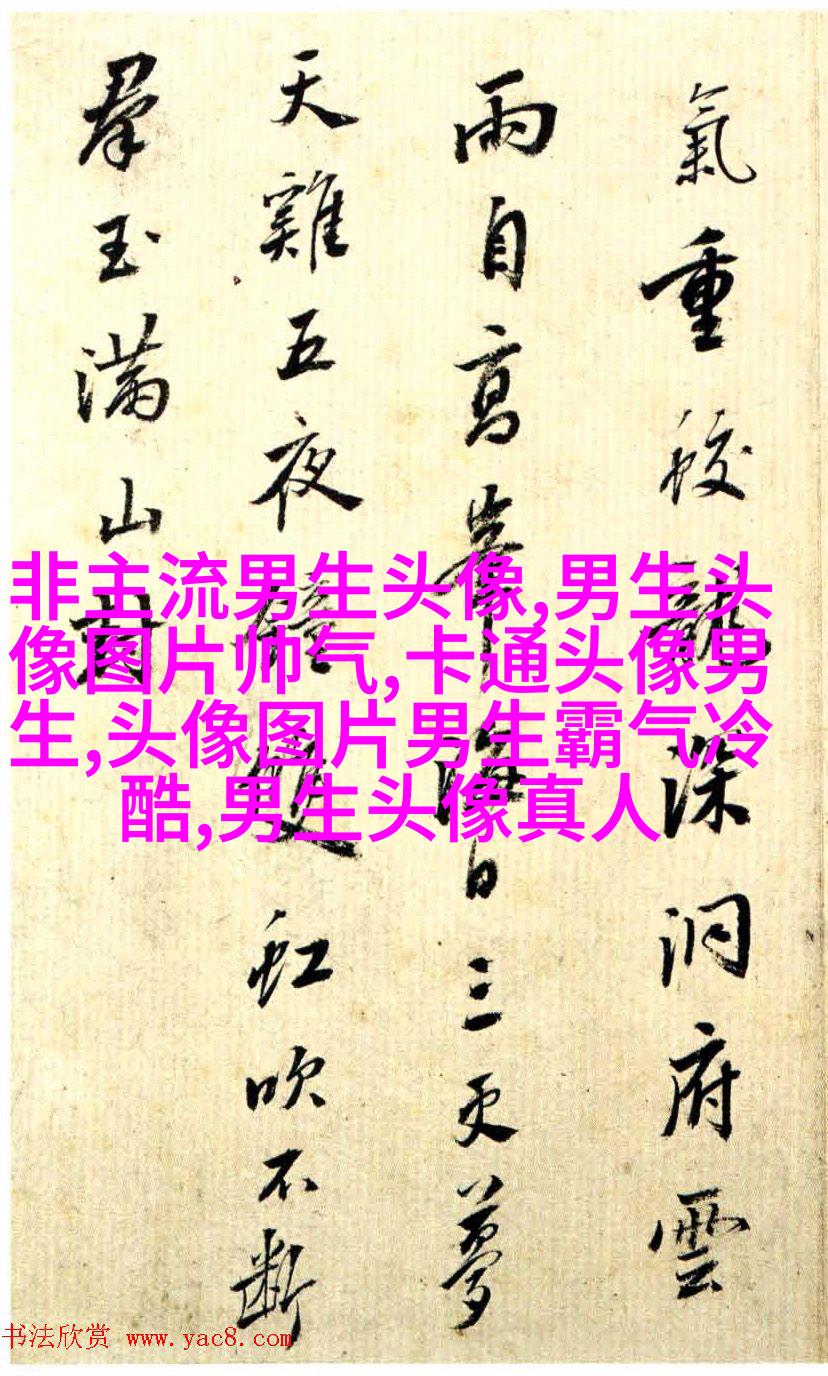 氣重蛟龍深洞府雲
雨自高海日三更夢
天雞五夜虹吹不斷
羣玉滿山
非主流男生头像,男生头
像图片帅气,卡通头像男
生,头像图片男生霸气冷
酷,男生头像真人
书法欣赏 www.yac8.com